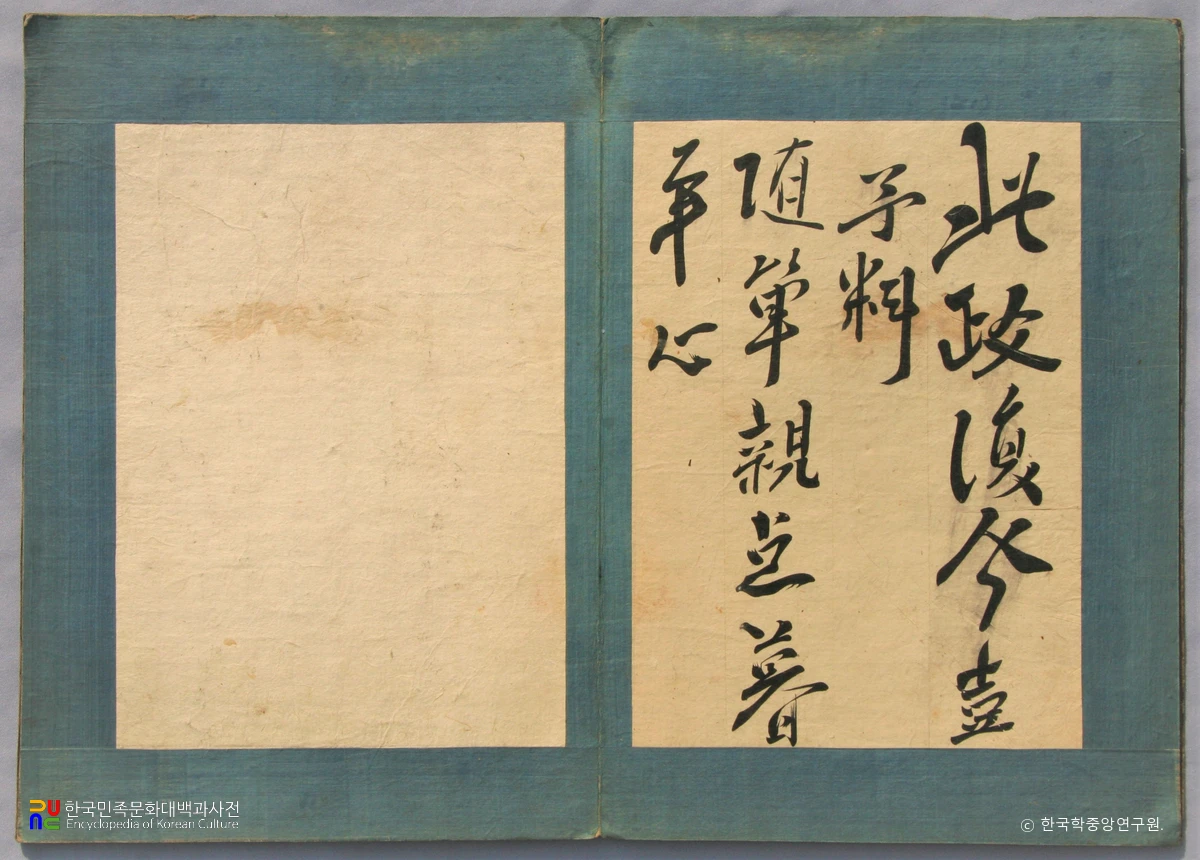 此政復今豈
予料
随單親点暮
年心
한국민족문화대백과사전
Encyclopedia of Korean Culture
ⓒ 한국학중앙연구원.